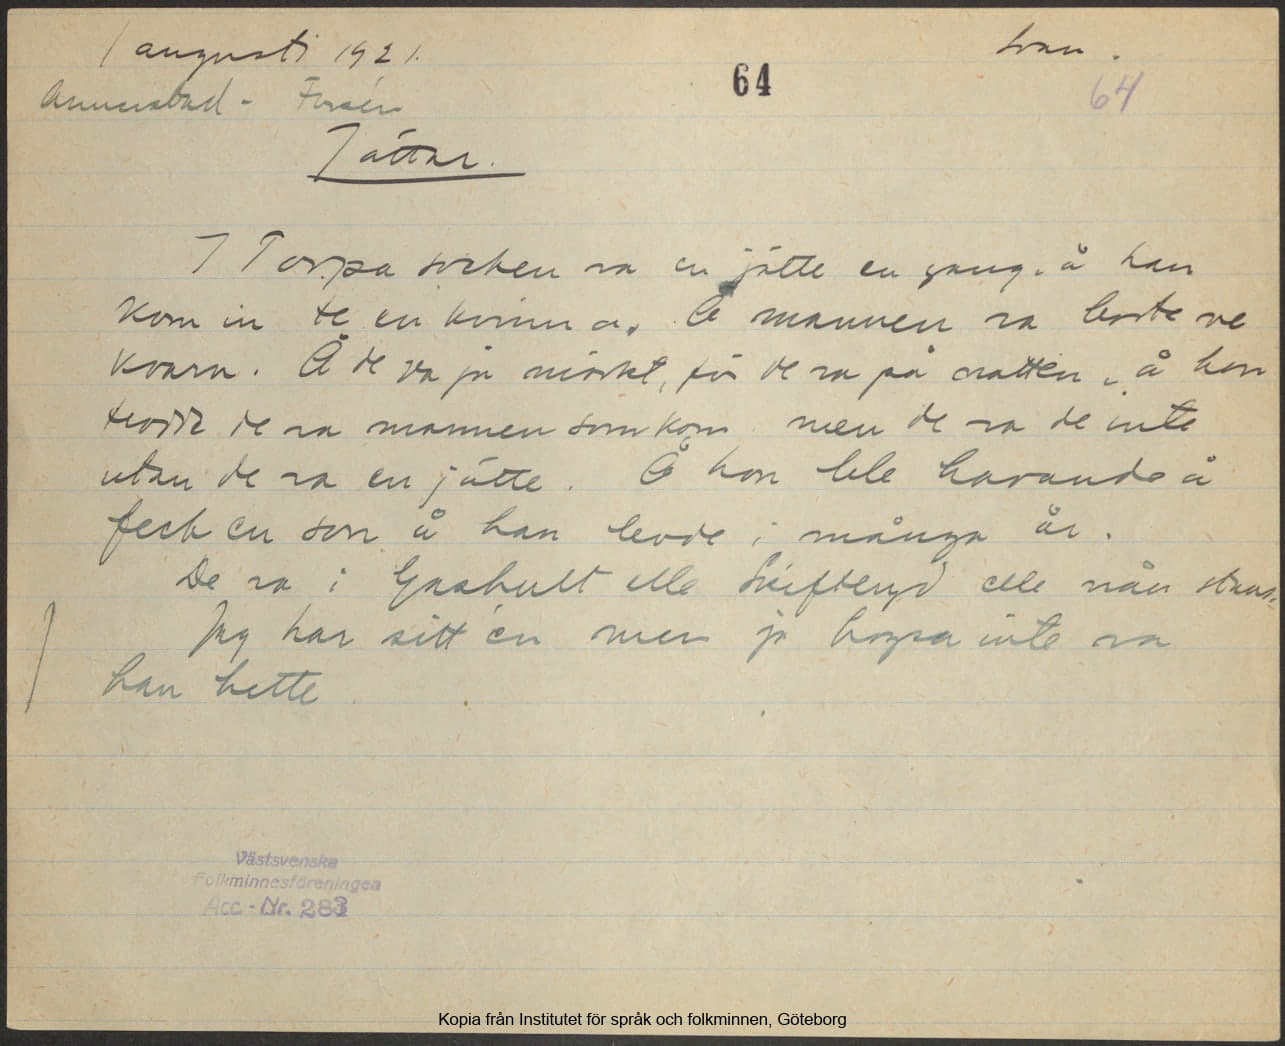 1 augusti 1921.
64
64
Annerstad - Forsén
Jättar.
I Torpa socken va en jätte en gang. å han
kom in te en kvinna. Å mannen va borte ve
kvarn. Å de va ju mörkt, för de va på natten, å hon
trodde de va mannen som kom men de va de inte
utan de va en jätte. Å hon ble havande å
feck en son å han levde i många år.
De va i Gashult elle Skifteryd elle nån
Jag har sitt en men ja inte va
han hette
Västsvenska
Folkminnesföreningen
Acc.-Nr. 283
Kopia från Institutet för språk och folkminnen, Göteborg